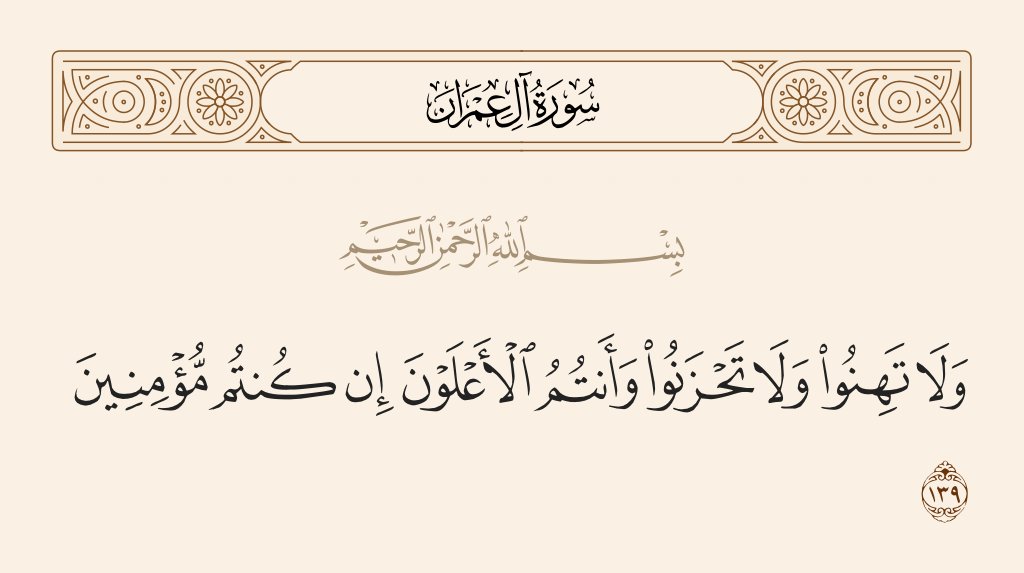 سُورَةُ آلِ عِمْرَان
بِسْمِ ٱللَّهِ ٱلرَّحْمَٰنِ ٱلرَّحِيمِ
وَلَا تَهِنُوا۟ وَلَا تَحْزَنُوا۟ وَأَنتُمُ ٱلْأَعْلَوْنَ إِن كُنتُم مُّؤْمِنِينَ
١٣٩